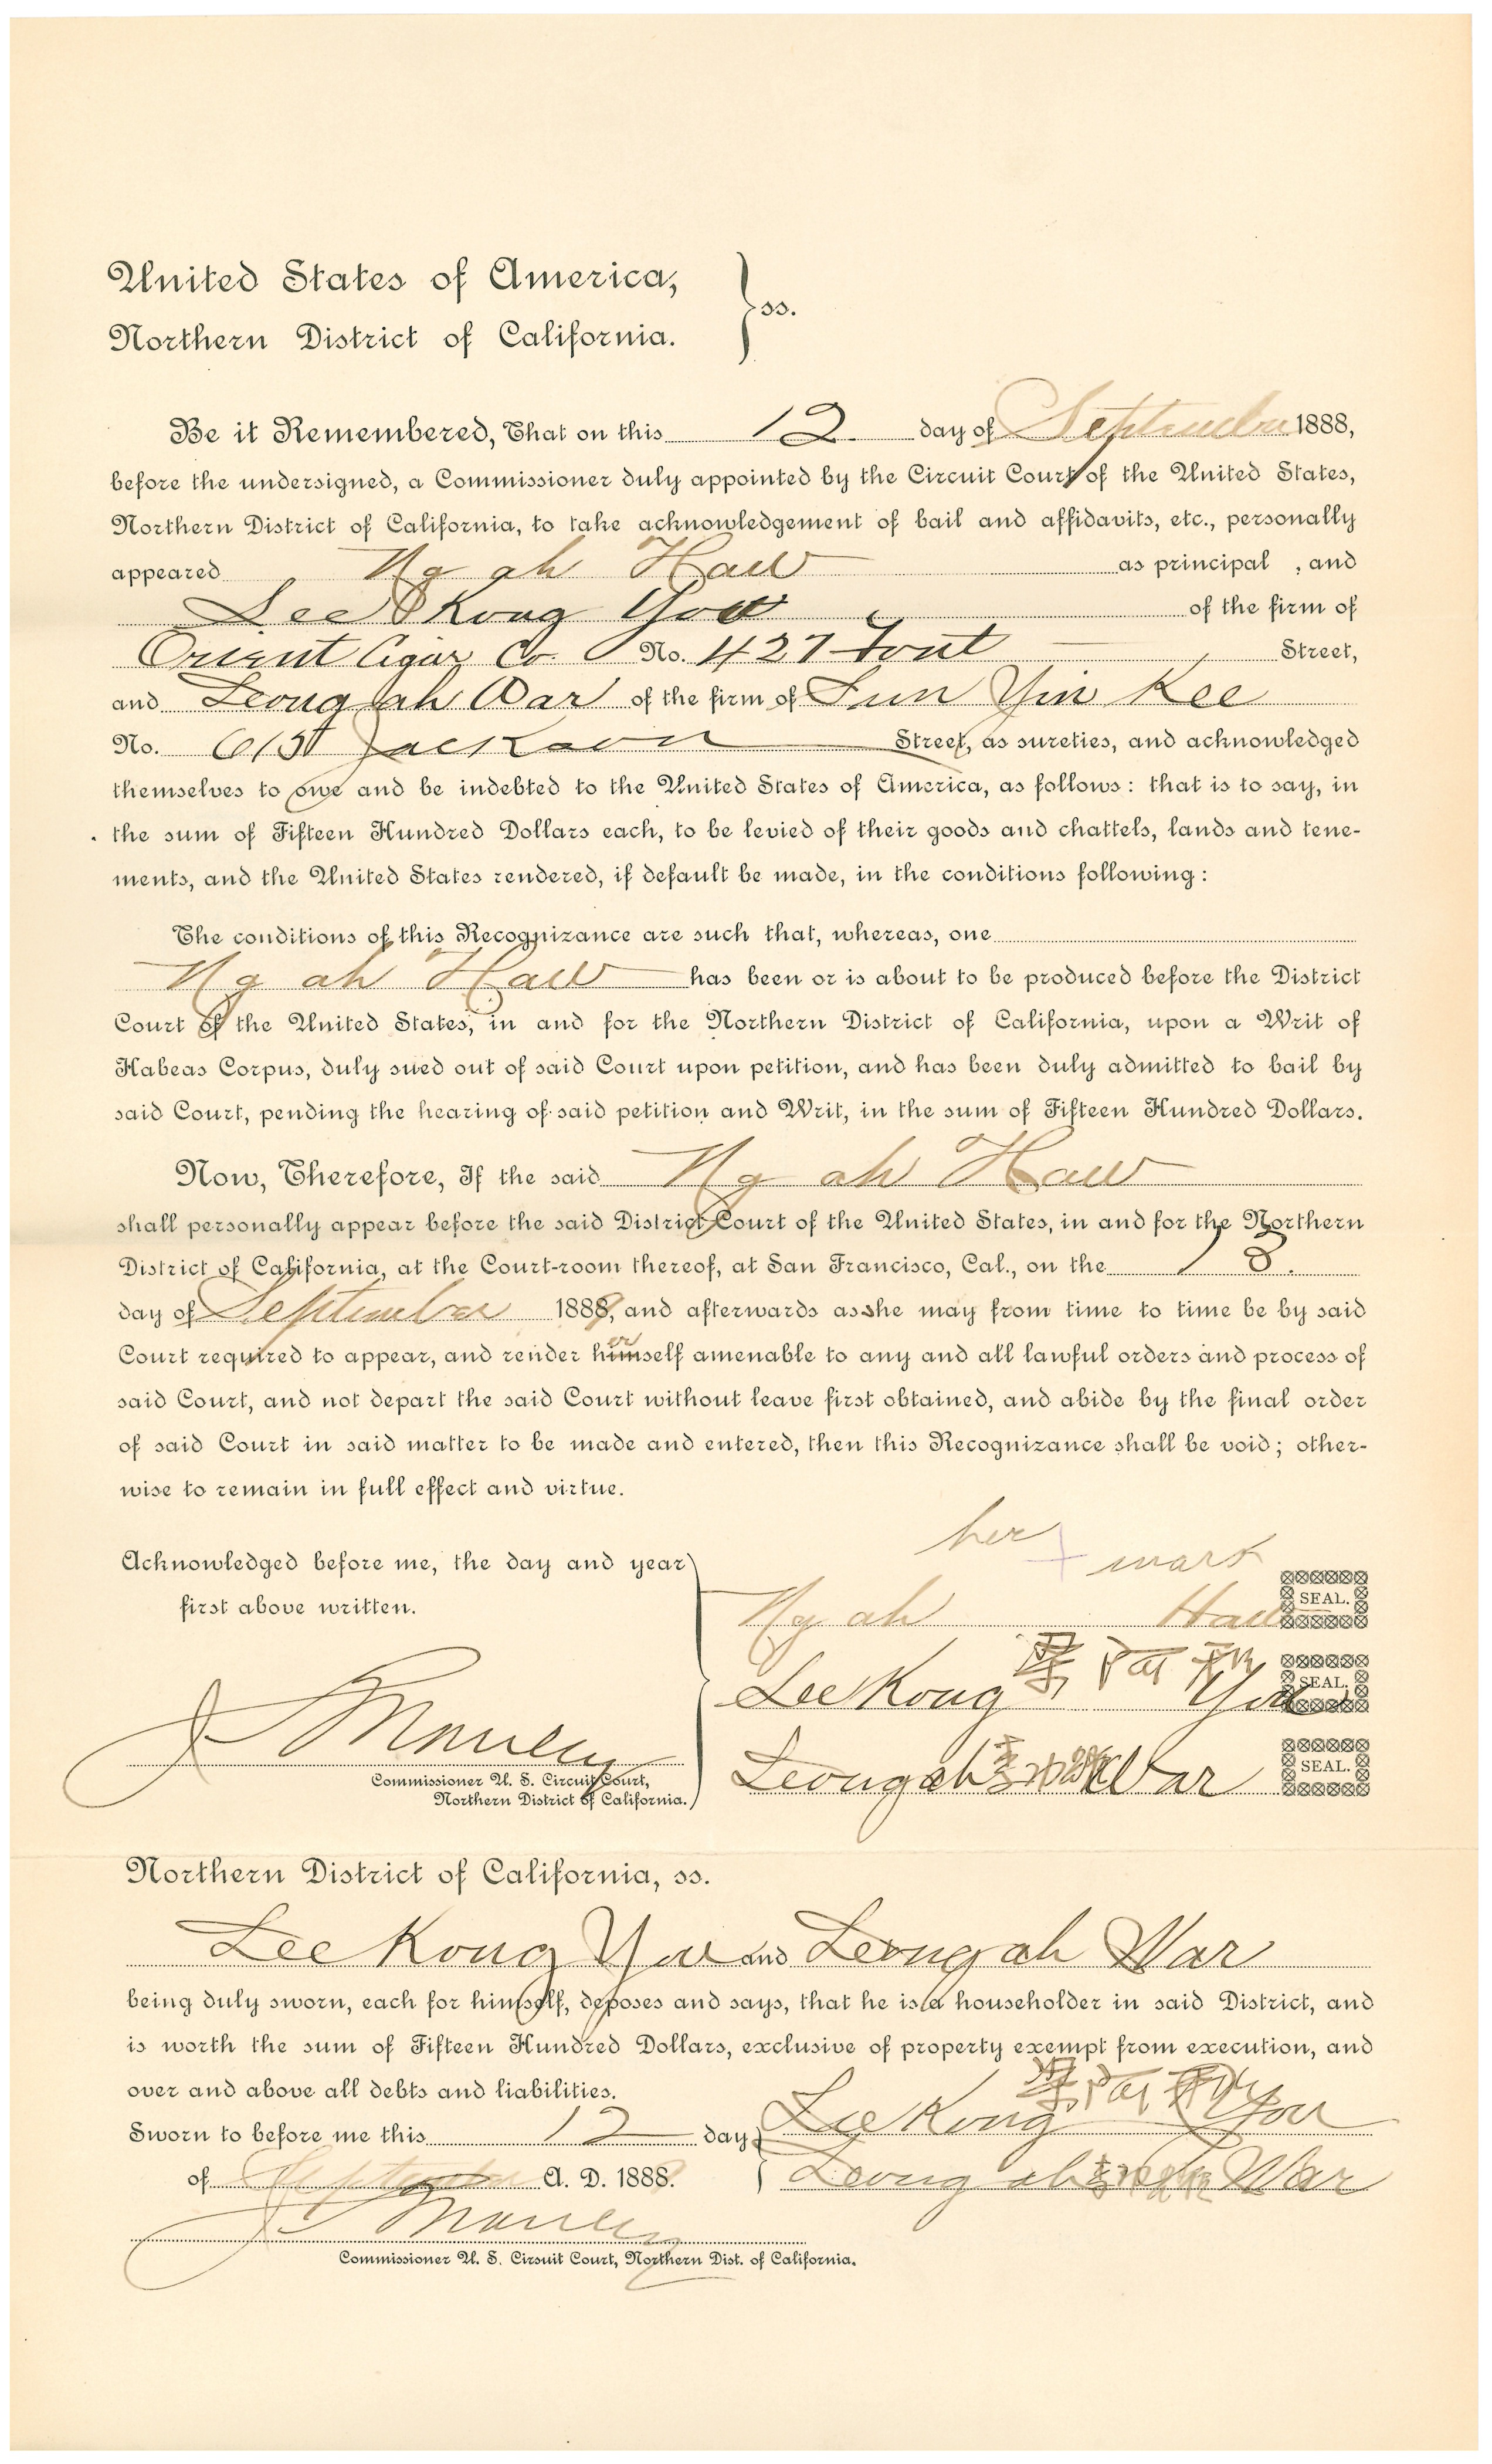 United States of America,
Northern District of California. } ss.
Be it Remembered, That on this 12. day of September 1888,
before the undersigned, a Commissioner duly appointed by the Circuit Court of the United States,
Northern District of California, to take acknowledgement of bail and affidavits, etc., personally
appeared Ng ah Haw as principal , and
Lee Kong You of the firm of
Orient Cigar Co. No. 427 Front Street,
and Leong ah War of the firm of Sun Yin Kee
No. 615 Jackson Street, as sureties, and acknowledged
themselves to owe and be indebted to the United States of America, as follows: that is to say, in
the sum of Fifteen Hundred Dollars each, to be levied of their goods and chattels, lands and tene-
ments, and the United States rendered, if default be made, in the conditions following:
The conditions of this Recognizance are such that, whereas, one
Ng ah Haw has been or is about to be produced before the District
Court of the United States, in and for the Northern District of California, upon a Writ of
Habeas Corpus, duly sued out of said Court upon petition, and has been duly admitted to bail by
said Court, pending the hearing of said petition and Writ, in the sum of Fifteen Hundred Dollars.
Now, Therefore, If the said Ng ah Haw
shall personally appear before the said District Court of the United States, in and for the Northern
District of California, at the Court-room thereof, at San Francisco, Cal., on the 18.
day of September 1888, and afterwards as she may from time to time be by said
Court required to appear, and render herself amenable to any and all lawful orders and process of
said Court, and not depart the said Court without leave first obtained, and abide by the final order
of said Court in said matter to be made and entered, then this Recognizance shall be void; other-
wise to remain in full effect and virtue.
her + mark
Acknowledged before me, the day and year
first above written.
Ng ah Haw SEAL.
Lee Kong You SEAL.
Leong ah War SEAL.
Commissioner U. S. Circuit Court,
Northern District of California.
Northern District of California, ss.
Lee Kong You and Leong ah War
being duly sworn, each for himself, deposes and says, that he is a householder in said District, and
is worth the sum of Fifteen Hundred Dollars, exclusive of property exempt from execution, and
over and above all debts and liabilities.
Sworn to before me this 12 day
Lee Kong You
of September A. D. 1888.
Leong ah War
Commissioner U. S. Cirsuit Court, Northern Dist. of California.